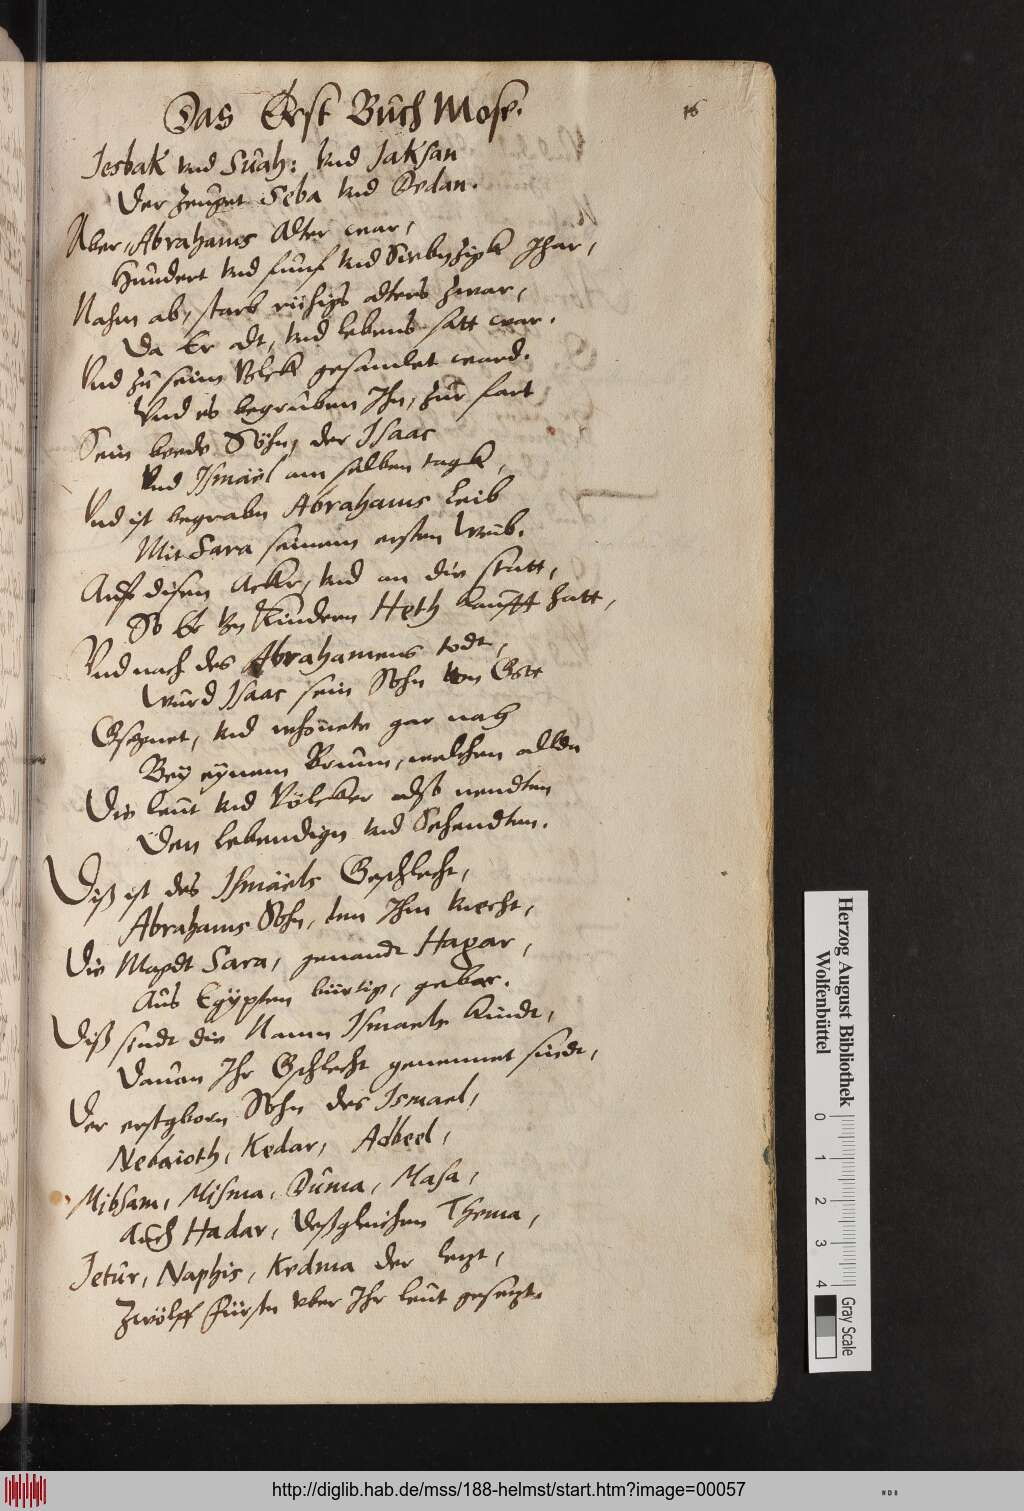 Das Erst Buch Mose.
16
Jesbak vnd Suah: vnd Jaksan
Der zeuget Seba vnd Dedan.
Aber, Abrahams Alter war,
Hundert vnd funf vnd Siebnzigk Jhar,
Nahm ab, starb rühigs alters zwar,
Da Er alt, vnd lebens satt war.
Vnd zu seim Volck gesamlet ward.
Vnd es begruben Ihn, zur fart
Sein beede Söhn, der Isaac
Vnd Ismäel am selben tagk,
Vnd ist begrabn Abrahams Leib
Mit Sara seinem ersten Weib.
Auf disen Acker, vnd an die statt,
So Er von Kindern Heth kaufft hatt,
Vnd nach des Abrahamens todt,
Wurd Isaac sein Sohn von Gott
Gsegnet, vnd whonete gar nah
Bey eynem Brunn, welchen allda
Die leut vnd Völcker alß nendten
Den lebendign vnd Sehendten.
Diß ist des Ismäels Geschlecht,
Abrahams Sohn, den Ihm knecht,
Die Magdt Sara, genandt Hagar,
Auß Egÿpten bürtig, gebar.
Diß sindt die Namn Ismaels kindt,
Dauon Ihr Gschlecht genennet sindt,
Der erstgborn Sohn des Ismael,
Nebaioth, Kedar, Adbeel,
Mibsam, Misma, Duma, Masa,
Auch Hadar, deßgleichen Thema,
Jetur, Naphis, Kedma der letzt,
Zwölff fürstn vber Ihr leut gesetzt.
Herzog August Bibliothek
Wolfenbüttel
0 1 2 3 4
Gray Scale
http://diglib.hab.de/mss/188-helmst/start.htm?image=00057